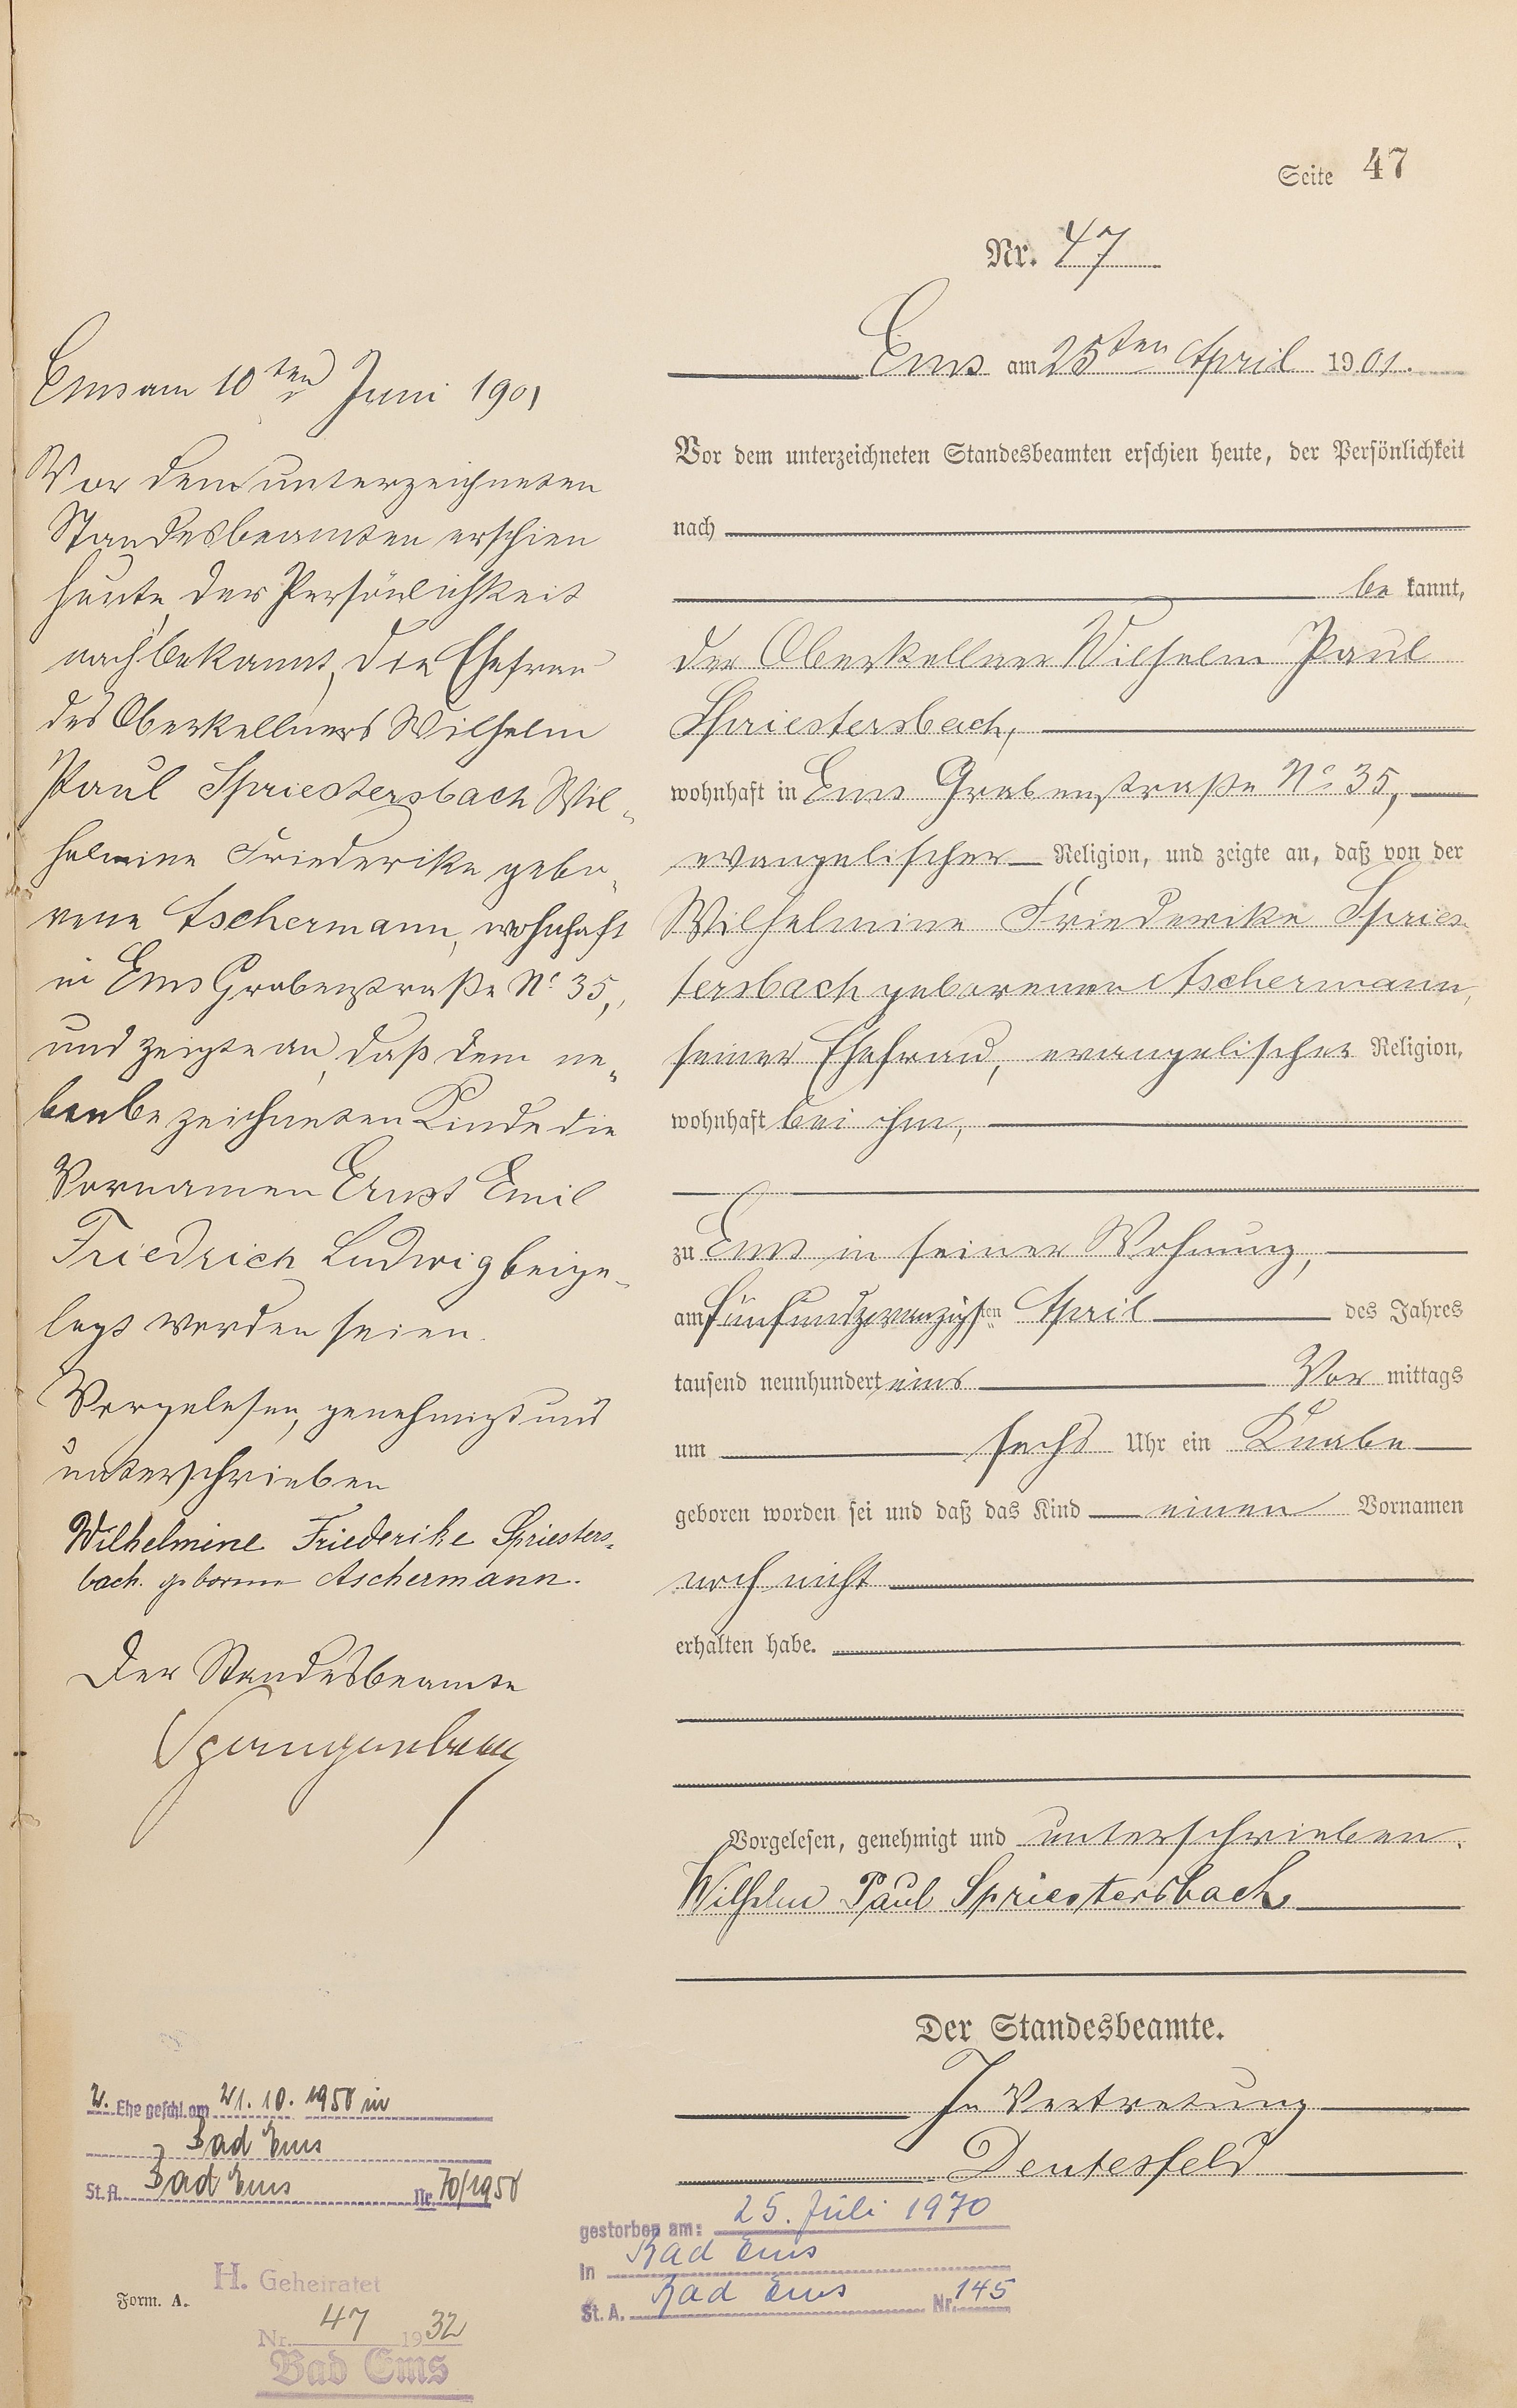 Seite 47
Nr. 47
Ems am 25ten April 1901.
Vor dem unterzeichneten Standesbeamten erschien heute, der Persönlichkeit
nach
be kannt,
der Oberkellner Wilhelm Paul
Spriestersbach,
wohnhaft in Ems Grabenstraße No 35,
evangelischer Religion, und zeigte an, daß von der
Wilhelmine Friederike Spries-
tersbach geborenen Aschermann,
seiner Ehefrau, evangelischer Religion,
wohnhaft bei ihm,
zu Ems in seiner Wohnung,
am fünfundzwanzigsten April des Jahres
tausend neunhundert eins Vor mittags
um sechs Uhr ein Knabe
geboren worden sei und daß das Kind einen Vornamen
noch nicht
erhalten habe.
Vorgelesen, genehmigt und unterschrieben.
Wilhelm Paul Spriestersbach
Der Standesbeamte.
In Vertretung
Deutesfeld
Ems am 10ten Juni 1901
Vor dem unterzeichneten
Standesbeamten erschien
heute, der Persönlichkeit
nach bekannt, die Ehefrau
des Oberkellners Wilhelm
Paul Spriestersbach Wil-
helmine Friederike gebo-
rene Aschermann, wohnhaft
in Ems Grabenstraße No 35,
und zeigte an, daß dem ne-
benbezeichneten Kinde die
Vornamen Ernst Emil
Friedrich Ludwig beige-
legt worden seien.
Vorgelesen, genehmigt und
unterschrieben
Wilhelmine Friederike Spriesters-
bach. geborene Aschermann.
Der Standesbeamte
Spangenberg
2. Ehe geschl. am 21. 10. 1950 in
Bad Ems
St. A. Bad Ems Nr. 70/1950
gestorben am: 25. Juli 1970
in Bad Ems
St. A. Bad Ems Nr. 145
Form. A.
H. Geheiratet
Nr. 47 1932
Bad Ems